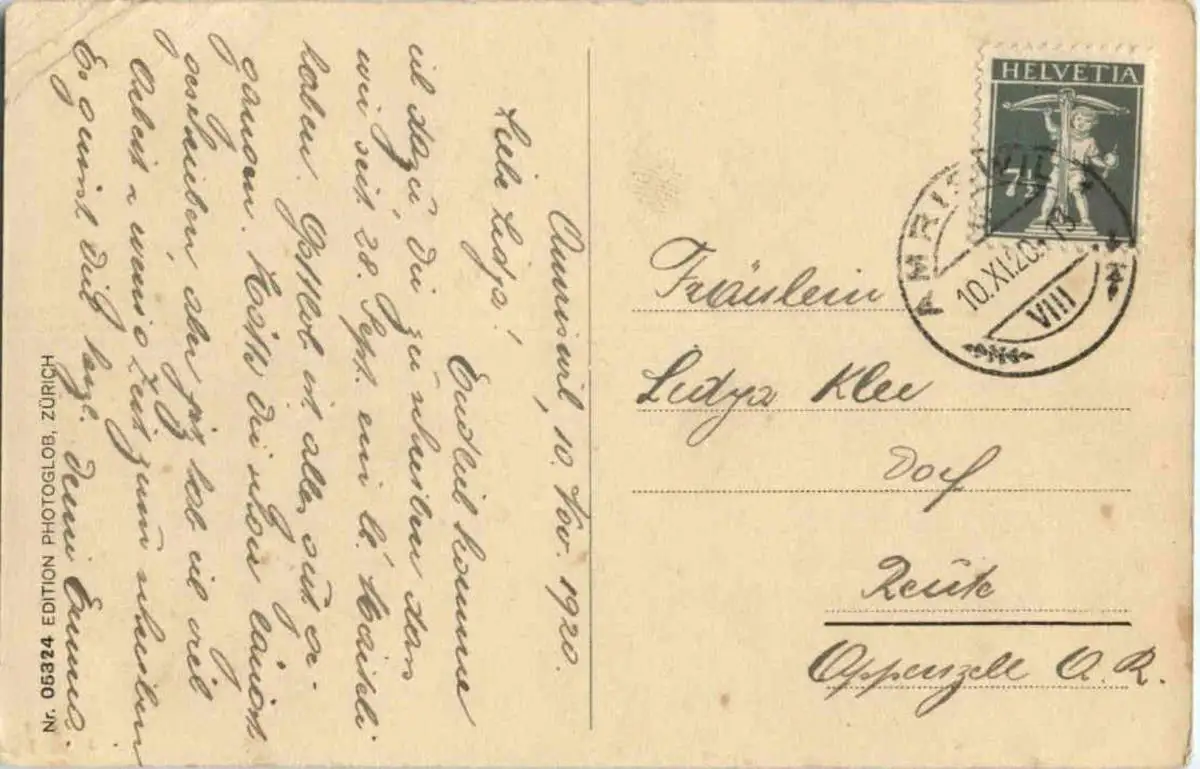 Amriswil, 10. Nov. 1920.
Liebe Lidya!
Endlich komme
ich dazu, dir zu schreiben, dass
wir seit 28. Sept. ein kl. Maiteli
haben. Gottlob ist alles gut ge-
gangen. Hätte dir schon längst
geschrieben, aber jetzt hab ich viel
Arbeit u wenig Zeit zum schreiben
Es grüsst dich herzl. deine Emma.
Nr. 05324 EDITION PHOTOGLOB, ZÜRICH
HELVETIA
7½
AMRISWIL
10.XI.20.
VIII
Fräulein
Lidya Klee
Dorf
Reute
Appenzell A. R.